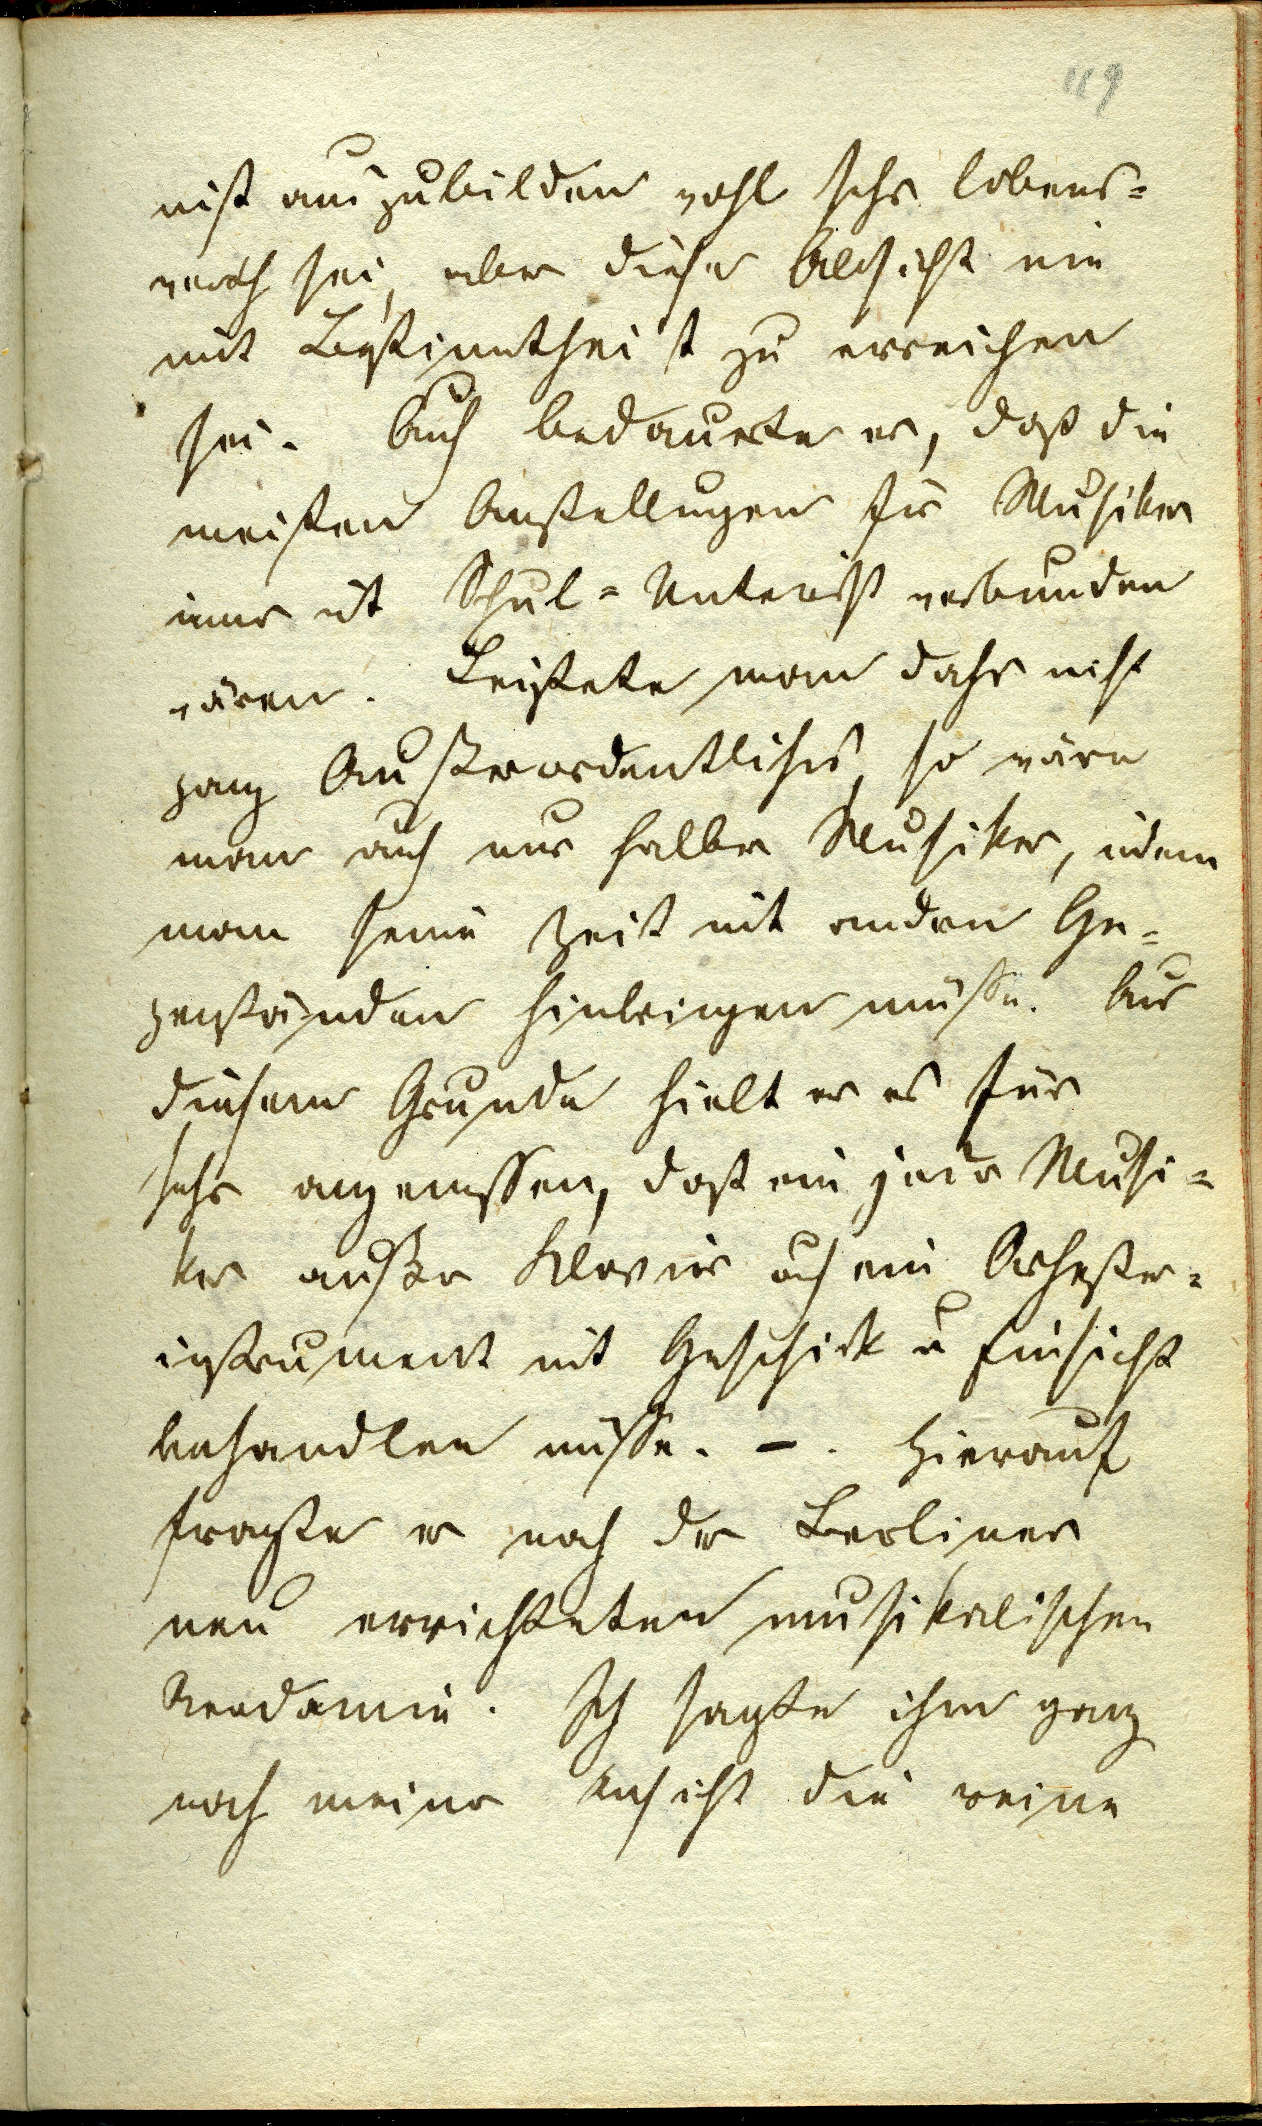 119
nist auszubilden wohl sehr lobens=
werth sei, aber diese Absicht nie
mit Bestimmtheit zu erreichen
sei. Auch bedauerte er, daß die
meisten Anstellungen für Musiker
immer mit Schul=Unterricht verbunden
wären. Leistete man daher nicht
ganz Außerordentliches, so wäre
man auch nur halber Musiker, indem
man seine Zeit mit anderen Ge=
genständen hinbringen müsse. Aus
diesem Grunde hielt er es für
sehr angemessen, daß ein jeder Musi=
ker außer Klavier auch ein Orchester=
instrument mit Geschick u Einsicht
behandlen müsse. –. Hierauf
fragte er nach der Berliner
neu errichteten musikalischen
Akademie. Ich sagte ihm ganz
nach meiner Ansicht die reine